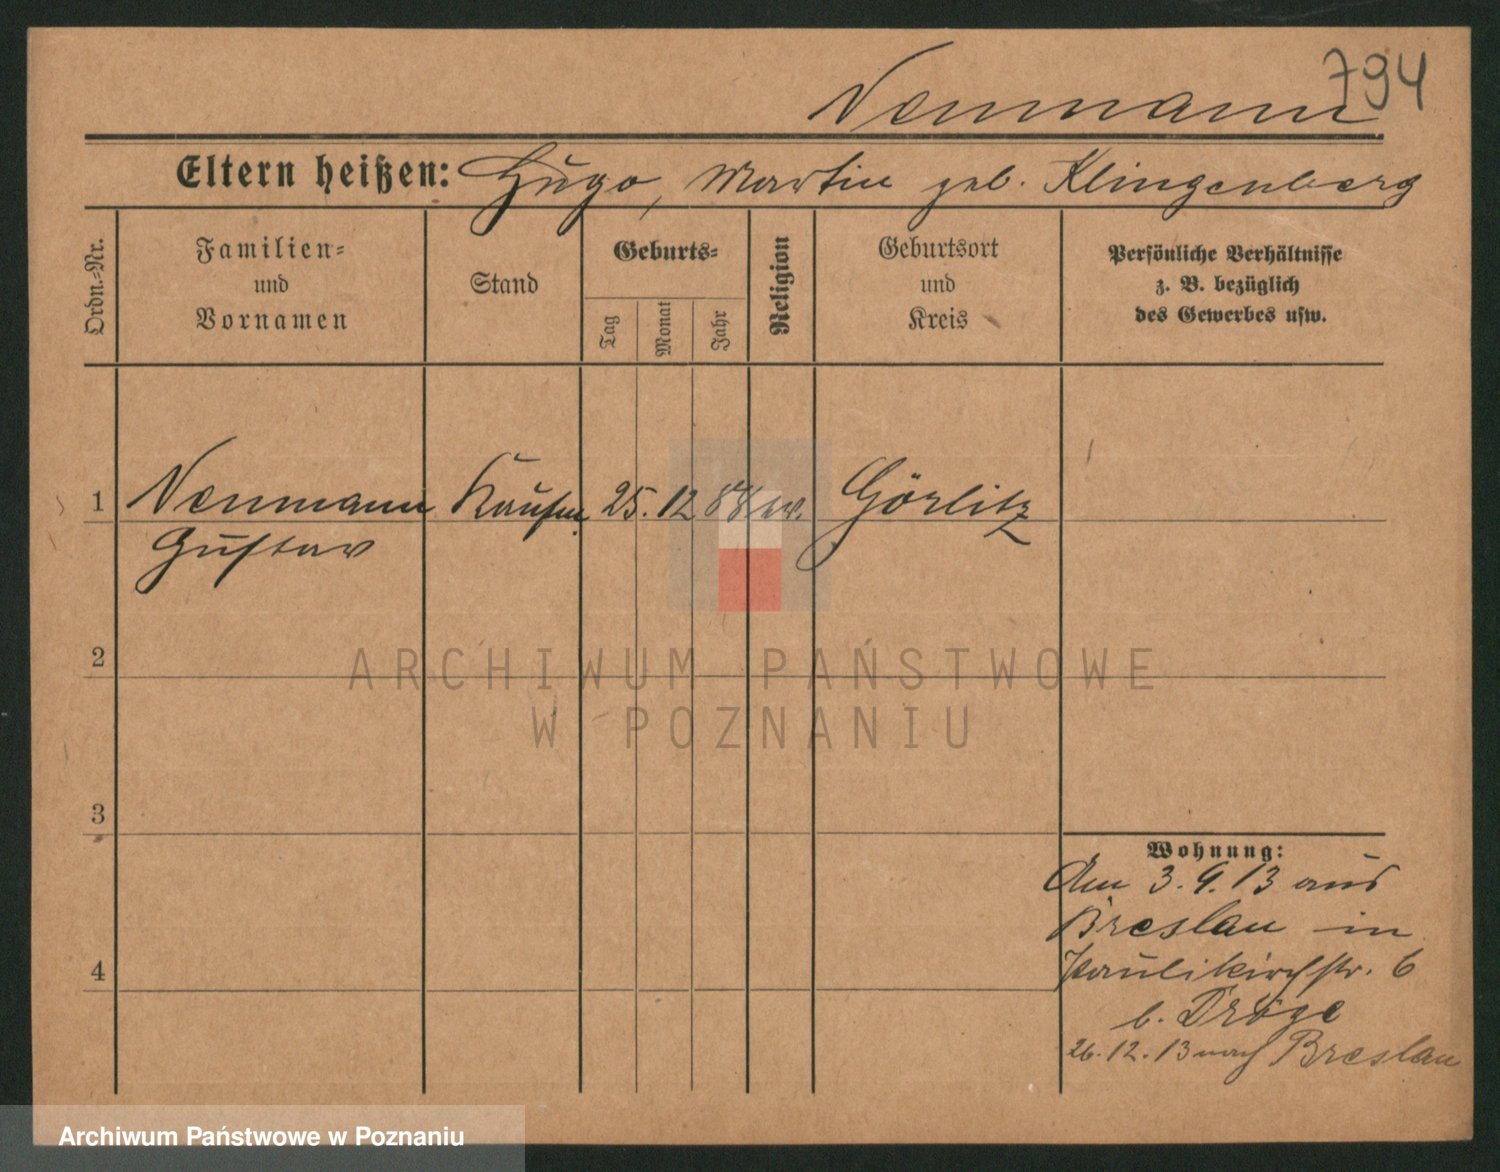 794
Neumann
Eltern heißen: Hugo, Martin geb. Klingenberg
Ordn.-Nr.
Familien-
und
Vornamen
Stand
Geburts-
Tag
Monat
Jahr
Religion
Geburtsort
und
Kreis
Persönliche Verhältnisse
z. B. bezüglich
des Gewerbes usw.
1 Neumann Kaufm. 25. 12 88 ev. Görlitz
Gustav
2
ARCHIWUM PAŃSTWOWE
W POZNANIU
3
Wohnung:
Am 3. 9. 13 aus
Breslau in
4
Paulikirchstr. 6
b. Dröge
26. 12. 13 nach Breslau
Archiwum Państwowe w Poznaniu